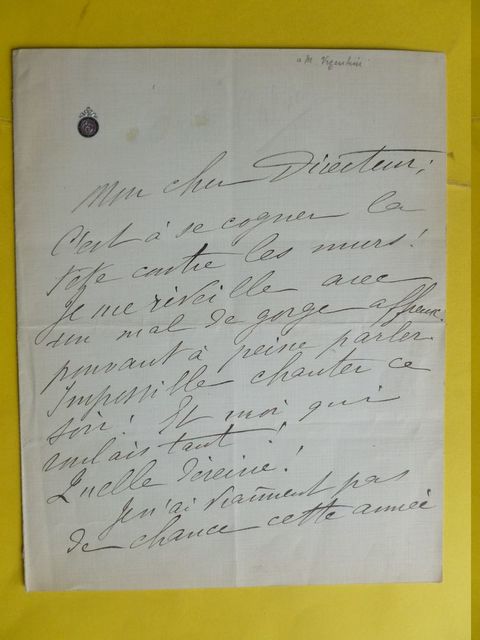 a M. Vizentini
Mon cher Directeur,
C'est à se cogner la
tête contre les murs!
Je me réveille avec
un mal de gorge affreux
pouvant à peine parler.
Impossible chanter ce
soir! Et moi qui
voulais tant!
Quelle déveine!
Je n'ai vraiment pas
de chance cette année